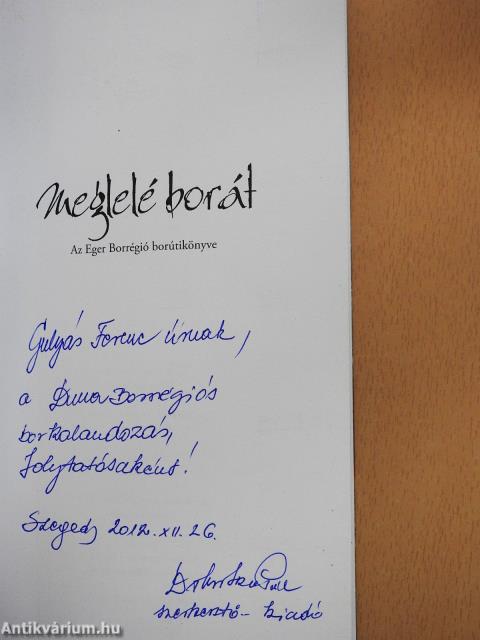 Meglelé borát
Az Eger Borrégió borútikönyve
Gulyás Ferenc úrnak,
a Duna Borrégiós
borkalandozás,
folytatásaként!
Szeged, 2012. XII. 26.
szerkesztő - kiadó
Antikvárium.hu